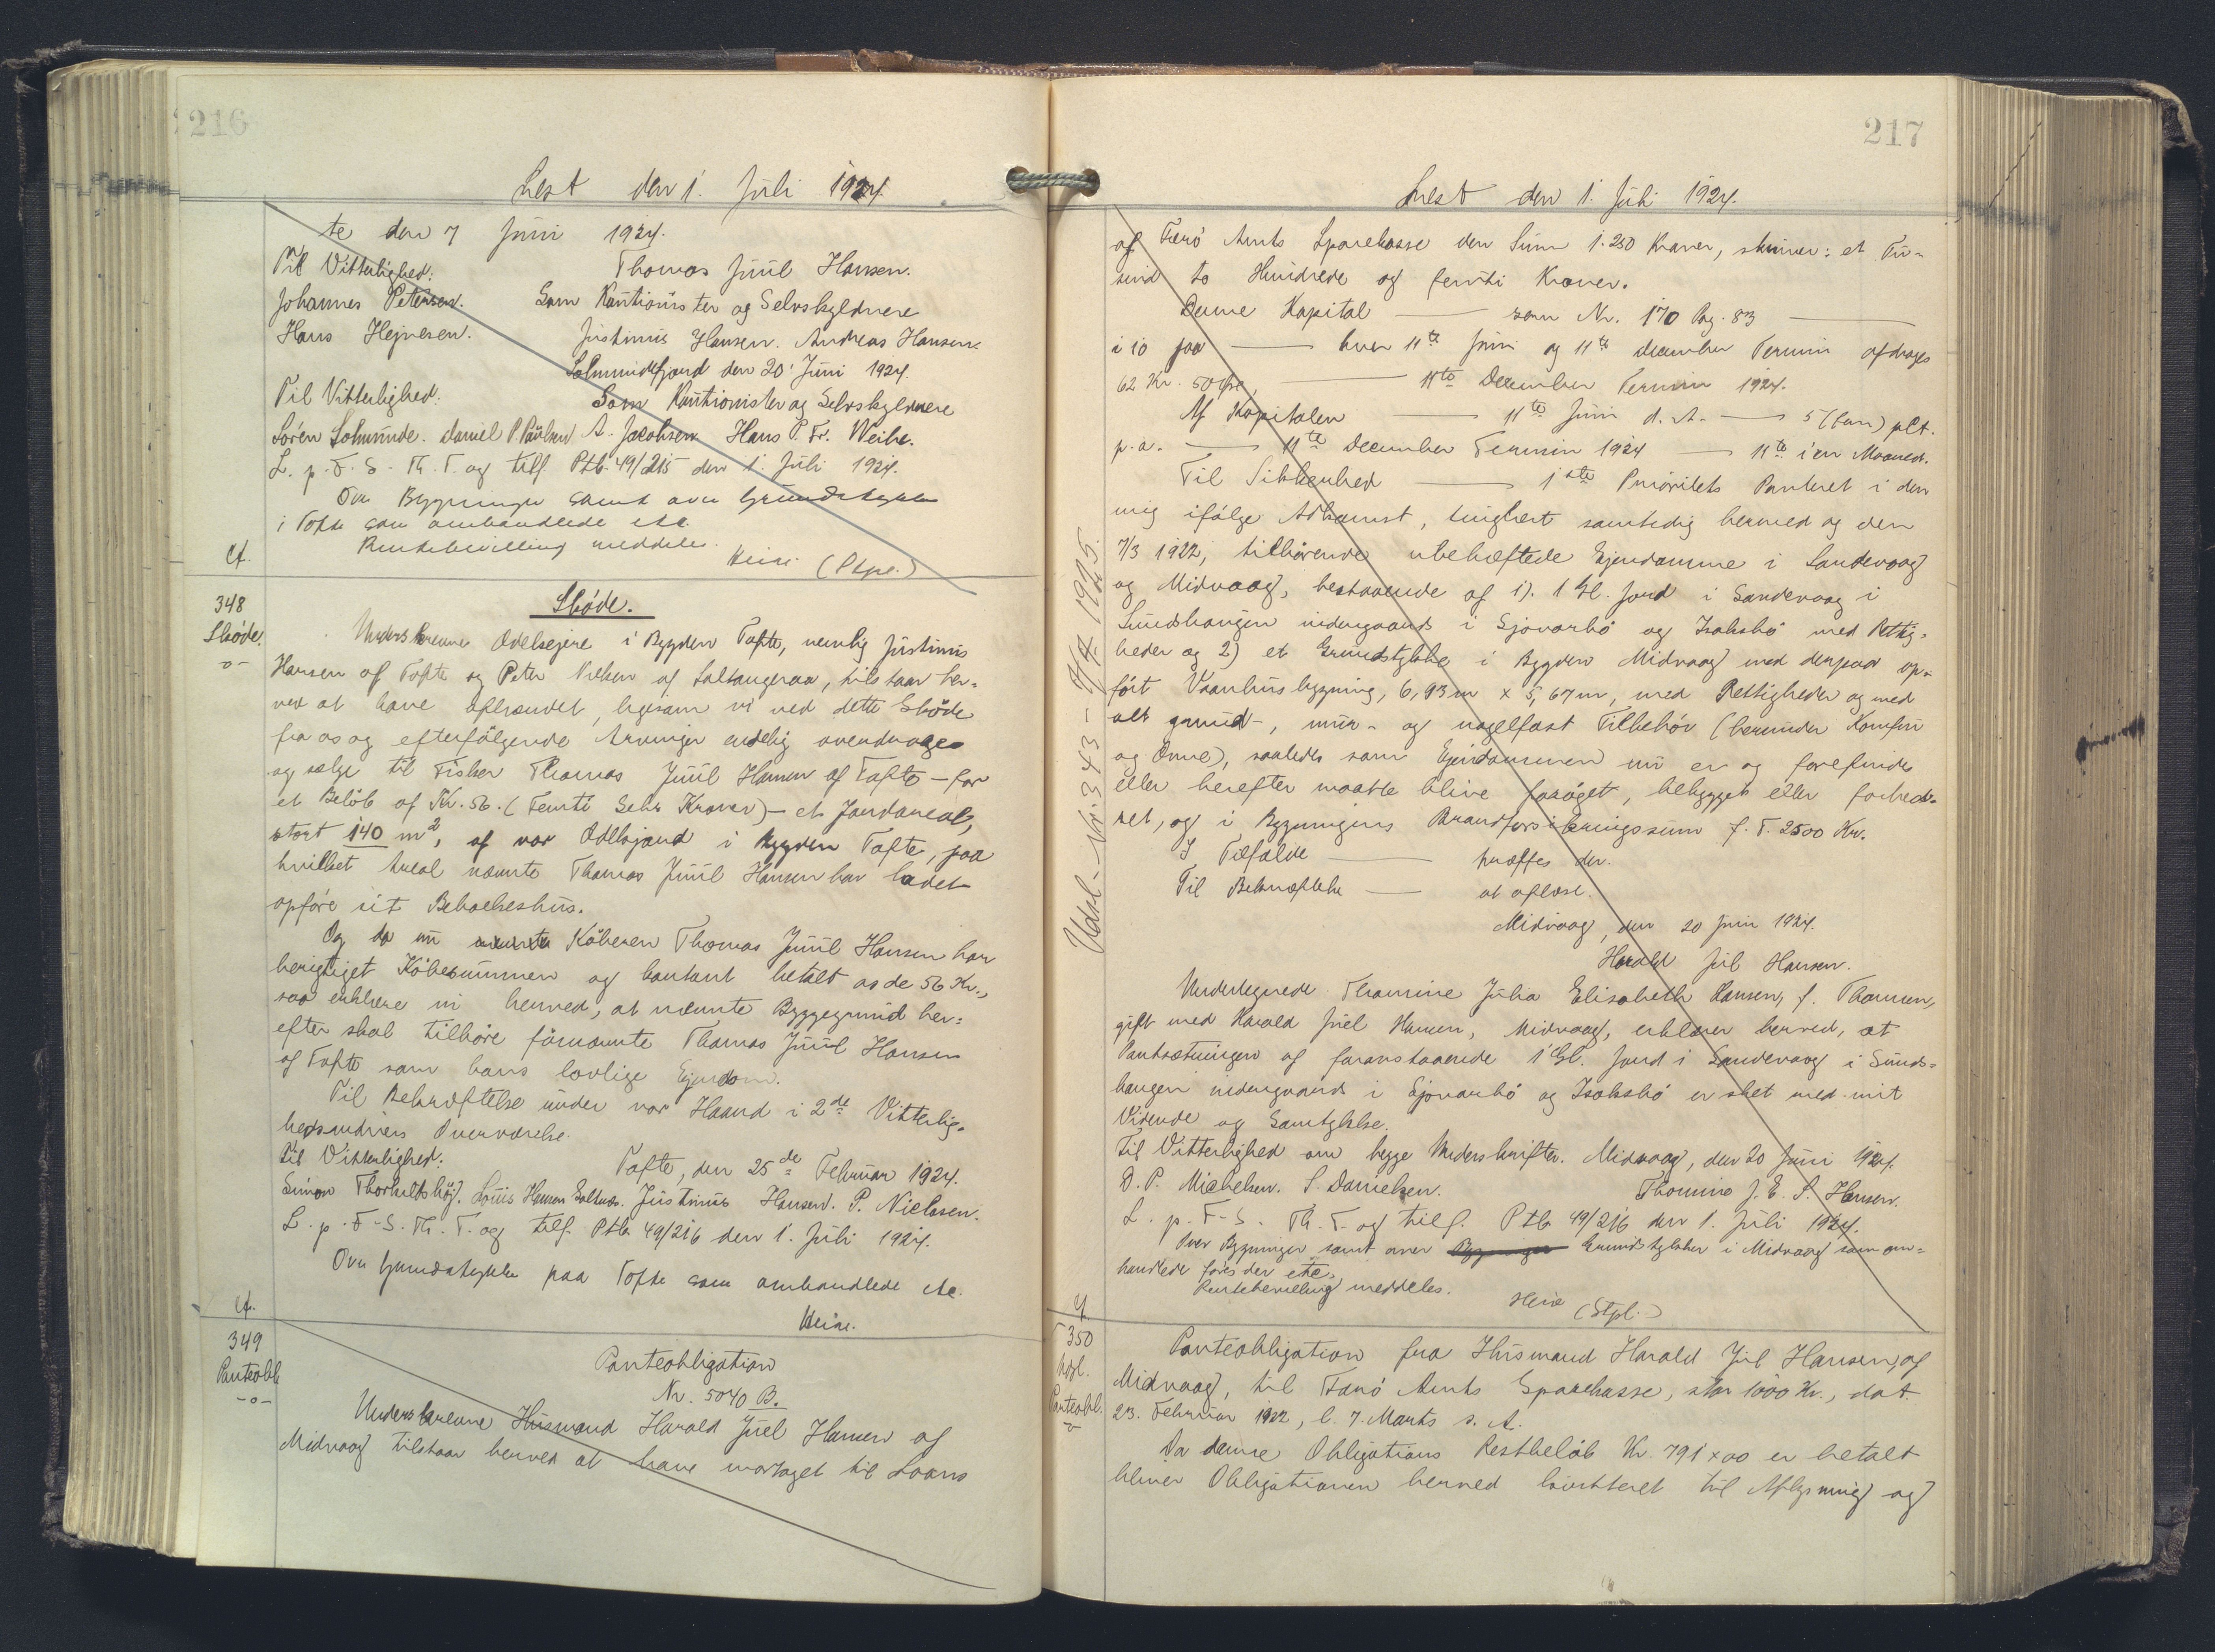 216
Læst den 1. Juli 1924.
te den 7 Juni 1924.
Til Vitterlighed: Thomas Juul Hansen.
Johannes Petersen. Som Kautionister og Selvskyldnere
Hans Hejnesen. Justinus Hansen. Andreas Hansen.
Solmundefjord den 20' Juni 1924.
Til Vitterlighed: Som Kautionister og Selvskyldnere
Sören Solmunde. Daniel P. Paulsen A. Jacobsen Hans P. Fr. Weihe.
L. p. F. S. Th. T. og tilf. Ptb. 49/215 den 1. Juli 1924.
Over Bygninger samt over Grundstykke
i Tofte som ombandlede etc.
Rentebevilling meddeles.
Cf. Heise (Stpl.)
348
Sköde.
Sköde.
-o-
Underskrevne Odelsejere i Bygden Tofte, nemlig Justinus
Hansen af Tofte og Peter Nielsen af Saltangeraa, tilstaar her-
ved at have afhændet, ligesom vi ved dette Sköde
fra os og efterfölgende Arvinger endelig overdrage
og sælge til Fisker Thomas Juul Hansen af Tofte - for
et Belöb af Kr. 56. (Femti Seks Kroner) - et Jordareal,
stort 140 m², af vor Odelsjord i Bygden Tofte, paa
hvilket Areal nævnte Thomas Juul Hansen har ladet
opföre sit Beboelseshus.
Og da nu nævnte Köberen Thomas Juul Hansen har
berigtiget Köbesummen og kontant betalt os de 56 Kr.,
saa erklære vi herved, at nævnte Byggegrund her-
efter skal tilhöre förnævnte Thomas Juul Hansen
af Tofte som hans lovlige Ejendom.
Til Bekræftelse under vor Haand i 2de Vitterlig-
hedsmdners Overværelse.
Til Vitterlighed: Tofte, den 25de Februar 1924.
Simon Thorkildshöj. Louis Hansen Saltnes. Justinus Hansen. P. Nielsen.
L. p. F-S. Th. T. og tilf. Ptb 49/216 den 1. Juli 1924.
Over Grundstykke paa Tofte som ombandlede etc.
Cf. Heise.
349
Panteobl.
-o-
Panteobligation
Nr. 5040 B.
Underskrevne Husmand Harald Juel Hansen af
Midvaag tilstaar herved at have modtaget til Laans
217
Læst den 1. Juli 1924.
af Færö Amts Sparekasse den Sum 1.250 Kroner, skriver: et Tu-
sind to Hundrede og femti Kroner.
Denne Kapital — som Nr. 170 Pag. 83 —
i 10 paa — hver 11te Juni og 11te December Termin afdrages
62 Kr. 50 Öre, — 11te December Termin 1924.
Af Kapitalen — 11te Juni d. A. — 5 (fem) pCt.
p. a. — 11te December Termin 1924 — 11te i en Maaned.
Til Sikkerhed — 1ste Prioritets Panteret i den
mig ifölge Adkomst, tinglæst samtidig hermed og den
7/3 1922, tilhörende ubehæftede Ejendomme i Sandevaag
og Midvaag, bestaaende af 1). 1 Gl. Jord i Sandevaag i
Sundshaugen indengaards i Gjovarbö og Isaksbö med Rettig-
heder og 2) et Grundstykke i Bygden Midvaag med derpaa op-
fört Vaanhusbygning, 6,93 m x 5,67 m, med Rettigheder og med
alt grund-, mur- og nagelfast Tilbehör (herunder Komfur
og Ovne), saaledes som Ejendommen nu er og forefindes
eller herefter maatte blive foröget, bebygget eller forbed-
ret, og i Bygningens Brandforsikringssum f. T. 2500 Kr.
I Tilfælde — træffes der.
Til Bekræftelse — at aflæse.
Midvaag, den 20 Juni 1924.
Harald Jul Hansen.
Undertegnede Thomine Julia Elisabeth Hansen, f. Thomsen,
gift med Harald Juel Hansen, Midvaag, erklærer herved, at
Pantsætningen af foranstaaende 1 Gl. Jord i Sandevaag i Sunds-
haugen indengaards i Gjovarbö og Isaksbö er sket med mit
Vidende og Samtykke.
Til Vitterlighed om begge Underskrifter. Midvaag, den 20 Juni 1924.
D. P. Michelsen. S. Danielsen. Thomine J. E. S. Hansen.
L. p. F-S. Th. T. og tilf. Ptb 49/216 den 1. Juli 1924.
Over Bygninger samt over Grundstykker i Midvaag som om-
handlede föres der etc.
Rentebevilling meddeles.
Heise (Stpl.)
Udsl. - Nr. 343 - 7/7. 1925.
Cf
350
Udsl.
Panteobl.
-o-
Panteobligation fra Husmand Harald Jul Hansen, af
Midvaag, til Færö Amts Sparekasse, stor 1000 Kr., dat
23. Februar 1922, l. 7. Marts s. A.
Da denne Obligations Restbelöb Kr. 791 x 00 er betalt
bliver Obligationen herved kvitteret til Aflysning og